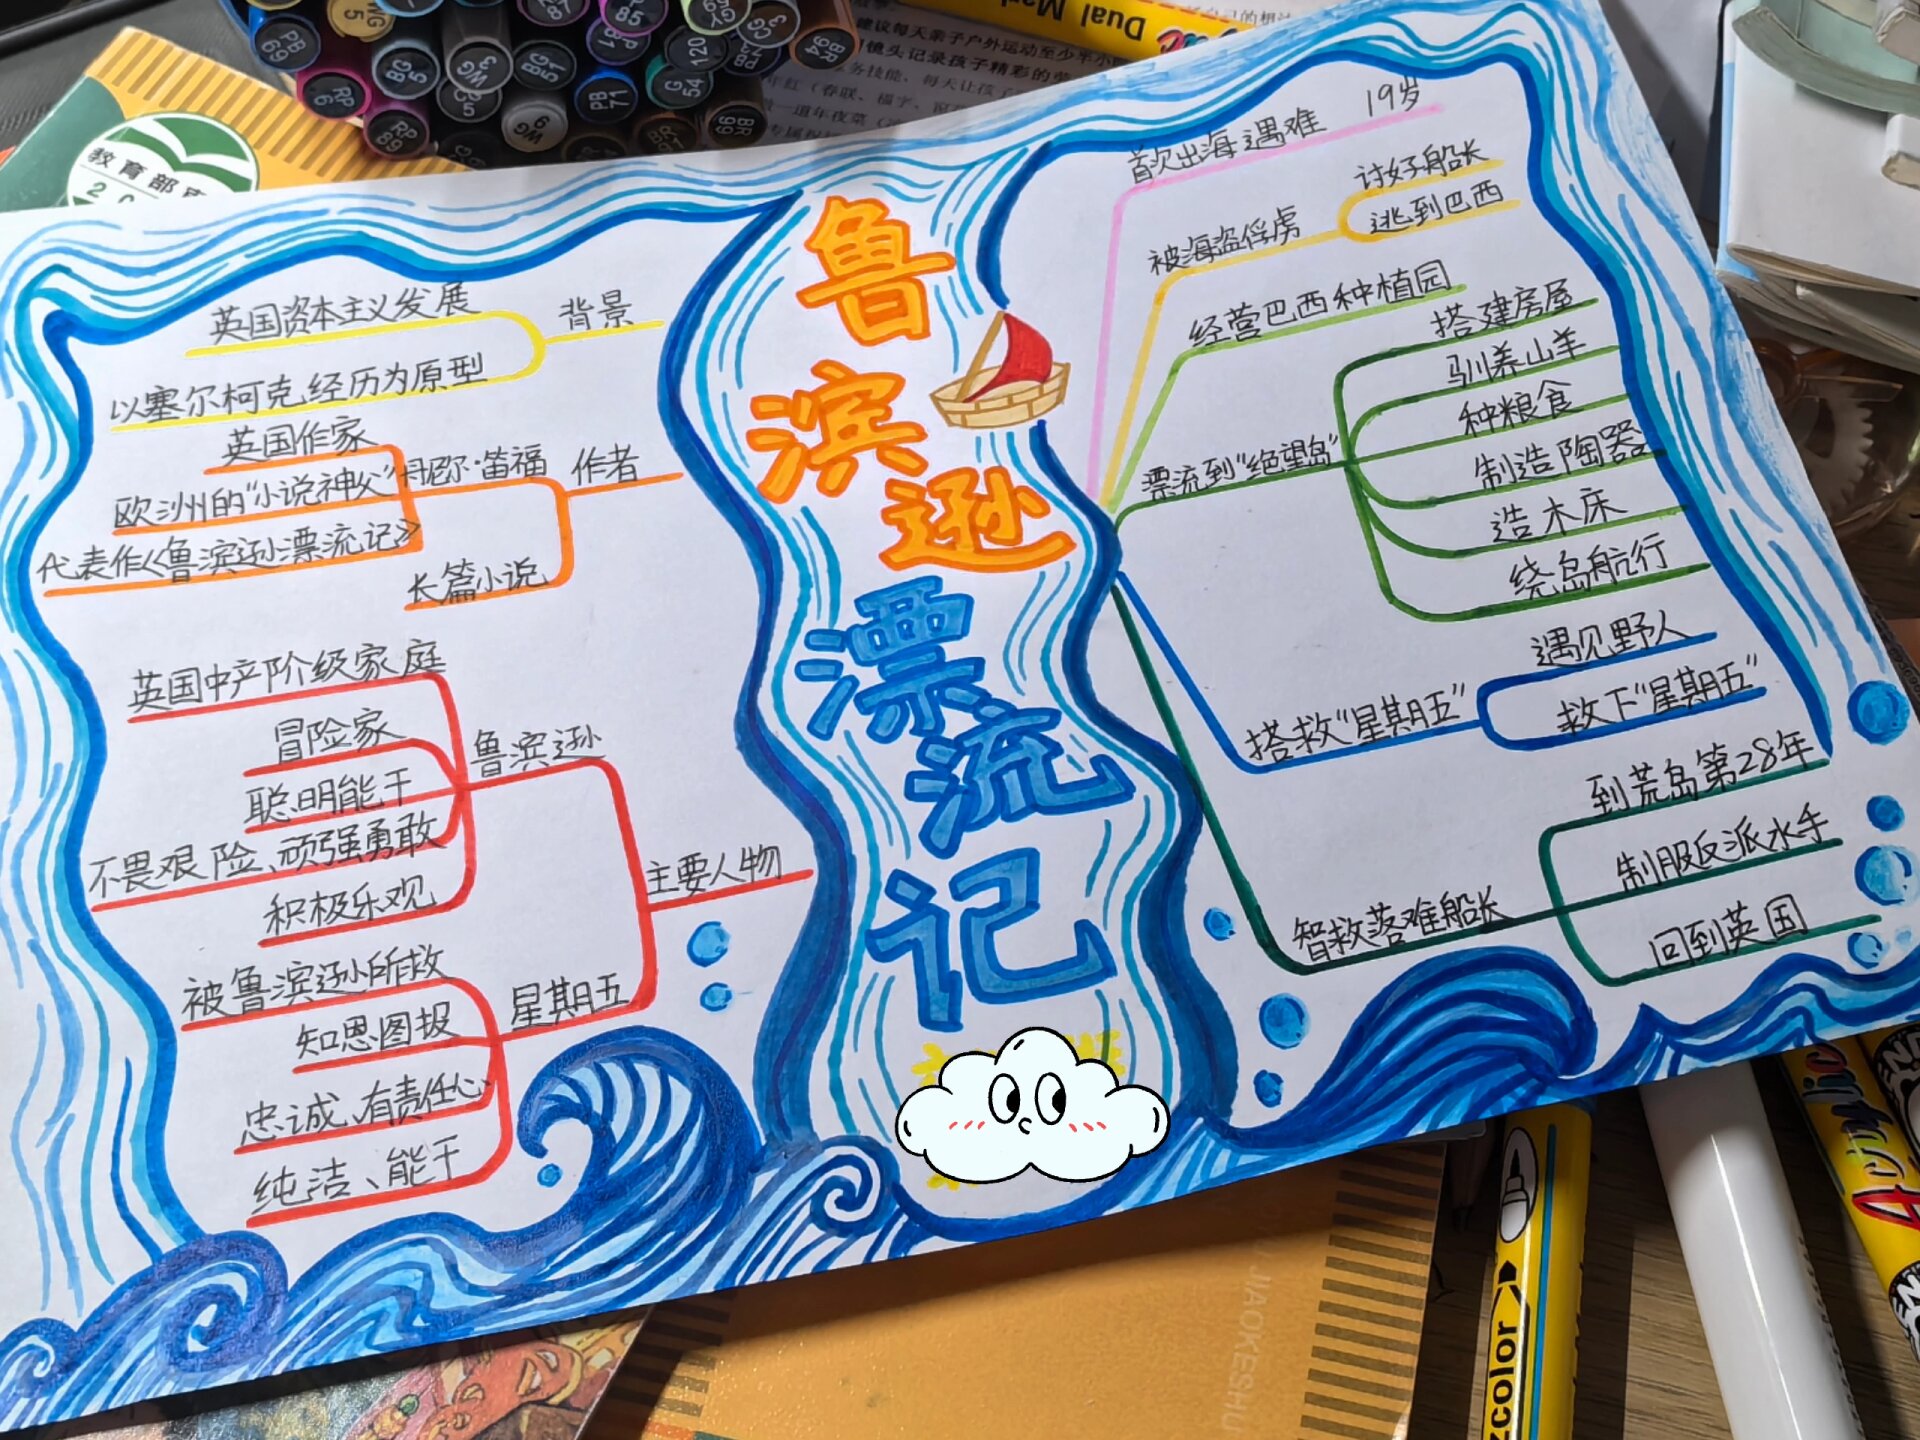 鲁滨逊漂流记
背景
英国资本主义发展
以塞尔柯克经历为原型
作者
丹尼尔·笛福
英国作家
欧洲的"小说神父"
代表作《鲁滨逊漂流记》
长篇小说
主要人物
鲁滨逊
英国中产阶级家庭
冒险家
聪明能干
不畏艰险、顽强勇敢
积极乐观
星期五
被鲁滨逊所救
知恩图报
忠诚、有责任心
纯洁、能干
首次出海遇难 19岁
被海盗俘虏
讨好船长
逃到巴西
经营巴西种植园
漂流到"绝望岛"
搭建房屋
驯养山羊
种粮食
制造陶器
造木床
绕岛航行
搭救"星期五"
遇见野人
救下"星期五"
智救落难船长
到荒岛第28年
制服反派水手
回到英国
教育部
Dual Mar
建议每天亲子户外运动至少半小时
镜头记录孩子精彩的
JIAOKESHU
zcolor
PB 69
WG 5
85
CG
120
BG 5
WG 3
BG 51
PB 71
G 54
BR 94
RP 6
RP 89
WG 9
BR 99